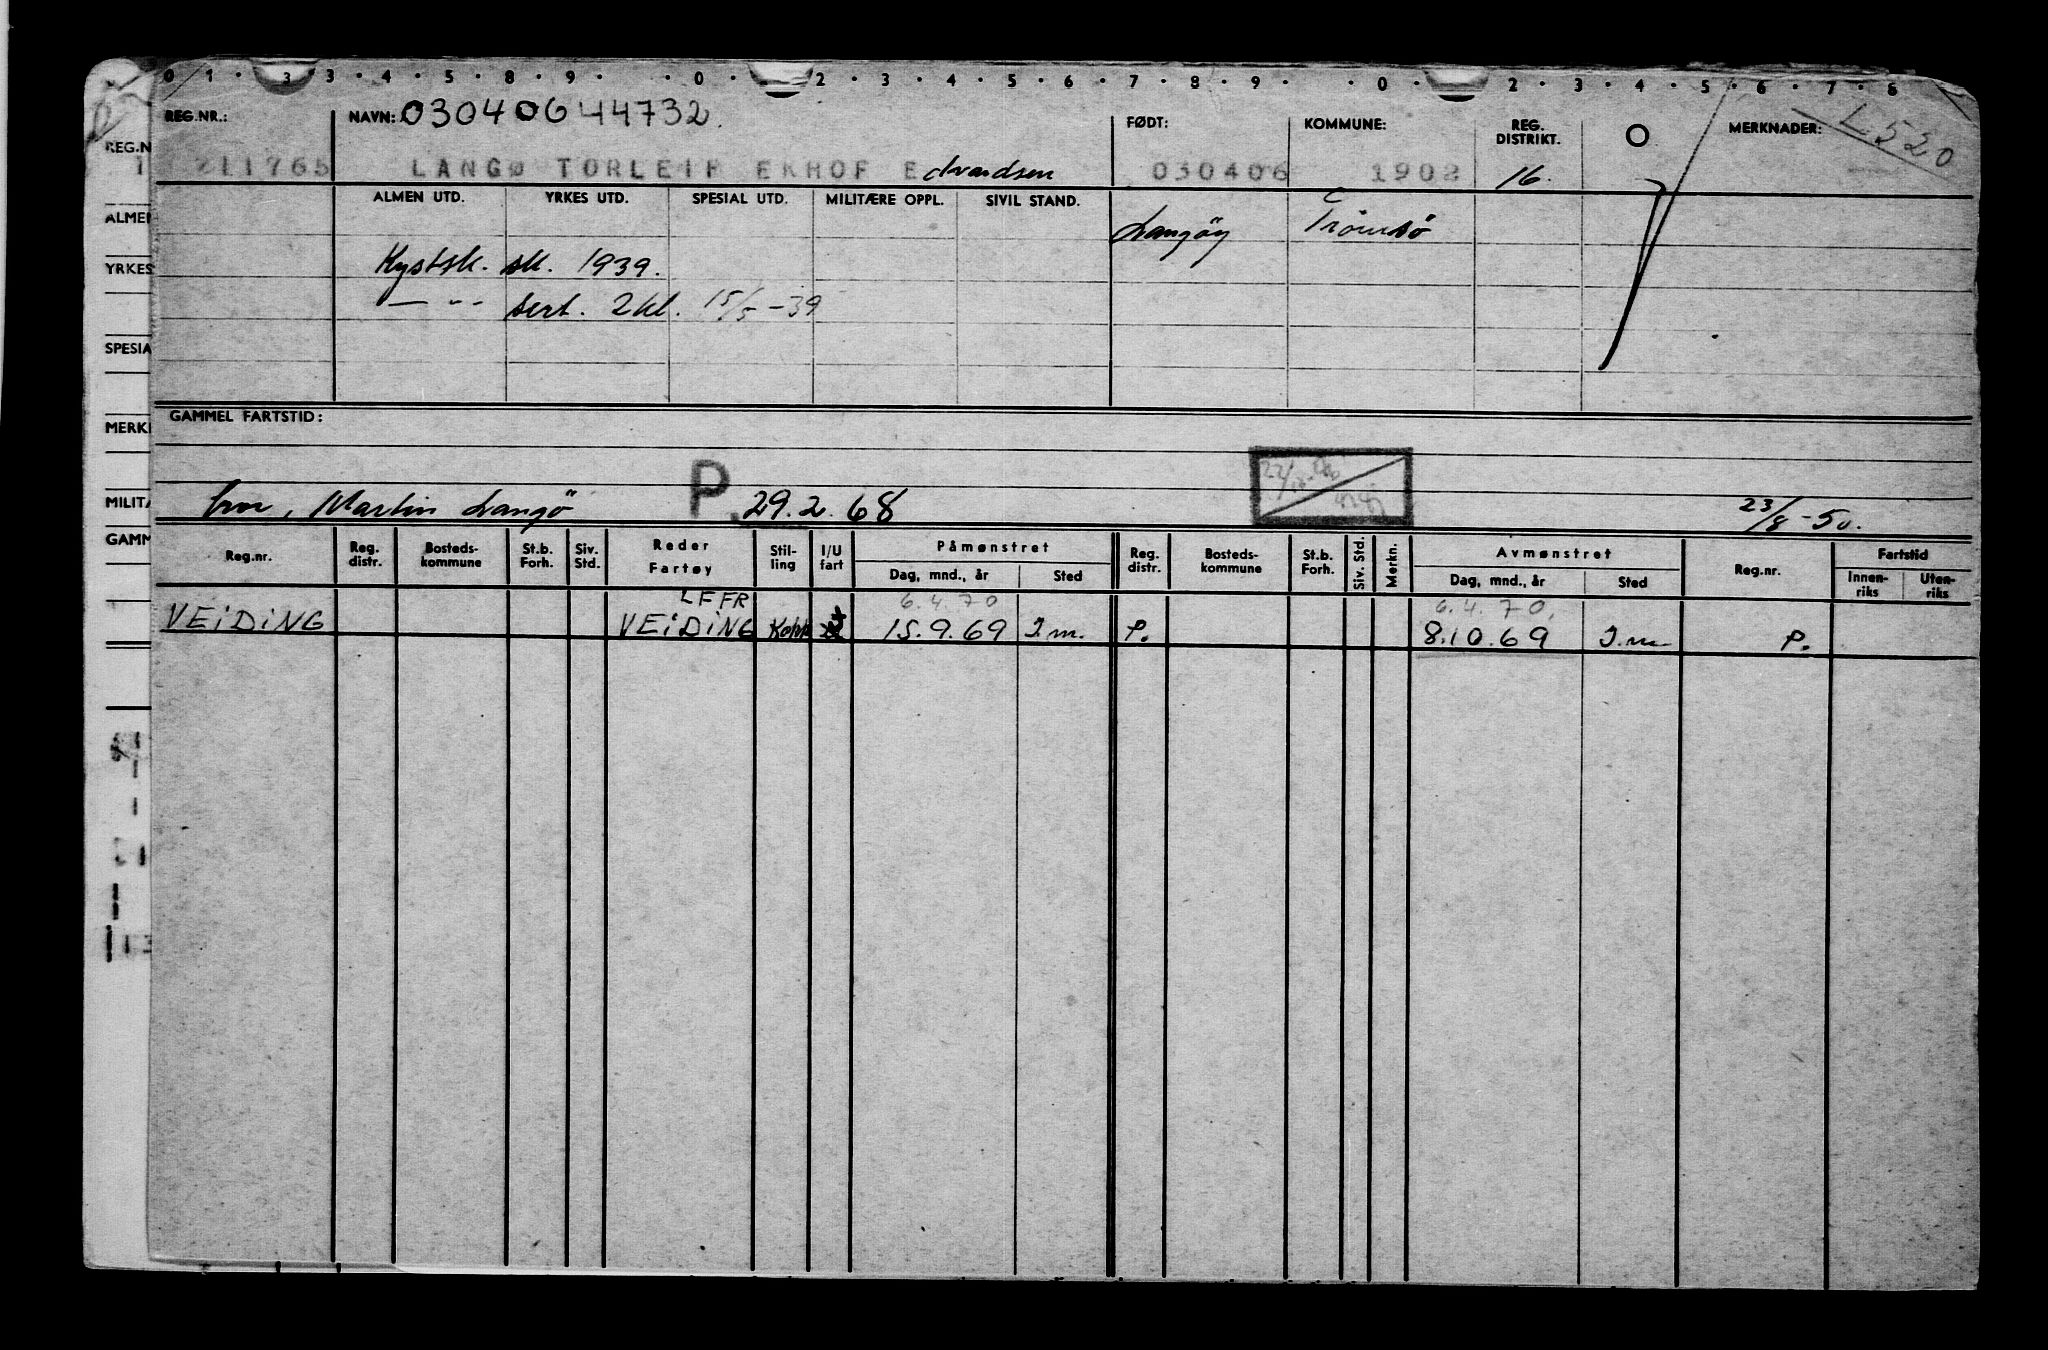 0 1 · 3 3 · 4 · 5 · 8 · 9 · · 0 · 2 · 3 · 4 · 5 · 6 · 7 · 8 · 9 · · 0 · 2 · 3 · 4 · 5 · 6 · 7 · 8
REG.NR.: NAVN: 03040644732 FØDT: KOMMUNE: REG. DISTRIKT. O MERKNADER: L520
211765 LANGØ TORLEIF EKHOF Edvardsen 030406 1902 16.
ALMEN UTD. YRKES UTD. SPESIAL UTD. MILITÆRE OPPL. SIVIL STAND.
Langöy Tromsö
Kystsk. sk. 1939.
— " - sert. 2 kl. 15/5 - 39
GAMMEL FARTSTID:
Martin Langö P. 29.2.68 23/8 - 50.
Reg.nr. Reg. distr. Bosteds- kommune St.b. Forh. Siv. Std. Reder Fartøy Stil- ling I/U fart Påmønstret Reg. distr. Bosteds- kommune St.b. Forh. Siv. Std. Merkn. Avmønstret Reg.nr. Fartstid
Dag, mnd., år Sted Dag, mnd., år Sted Innen- riks Uten- riks
LFFR 6.4.70 6.4.70.
VEiDiNG VEiDiNG Kokk 15.9.69 I.m. P. 8.10.69 I.m. P.
REG.N
ALMEN
YRKES
SPESIA
MERKI
MILITÆ
GAMM